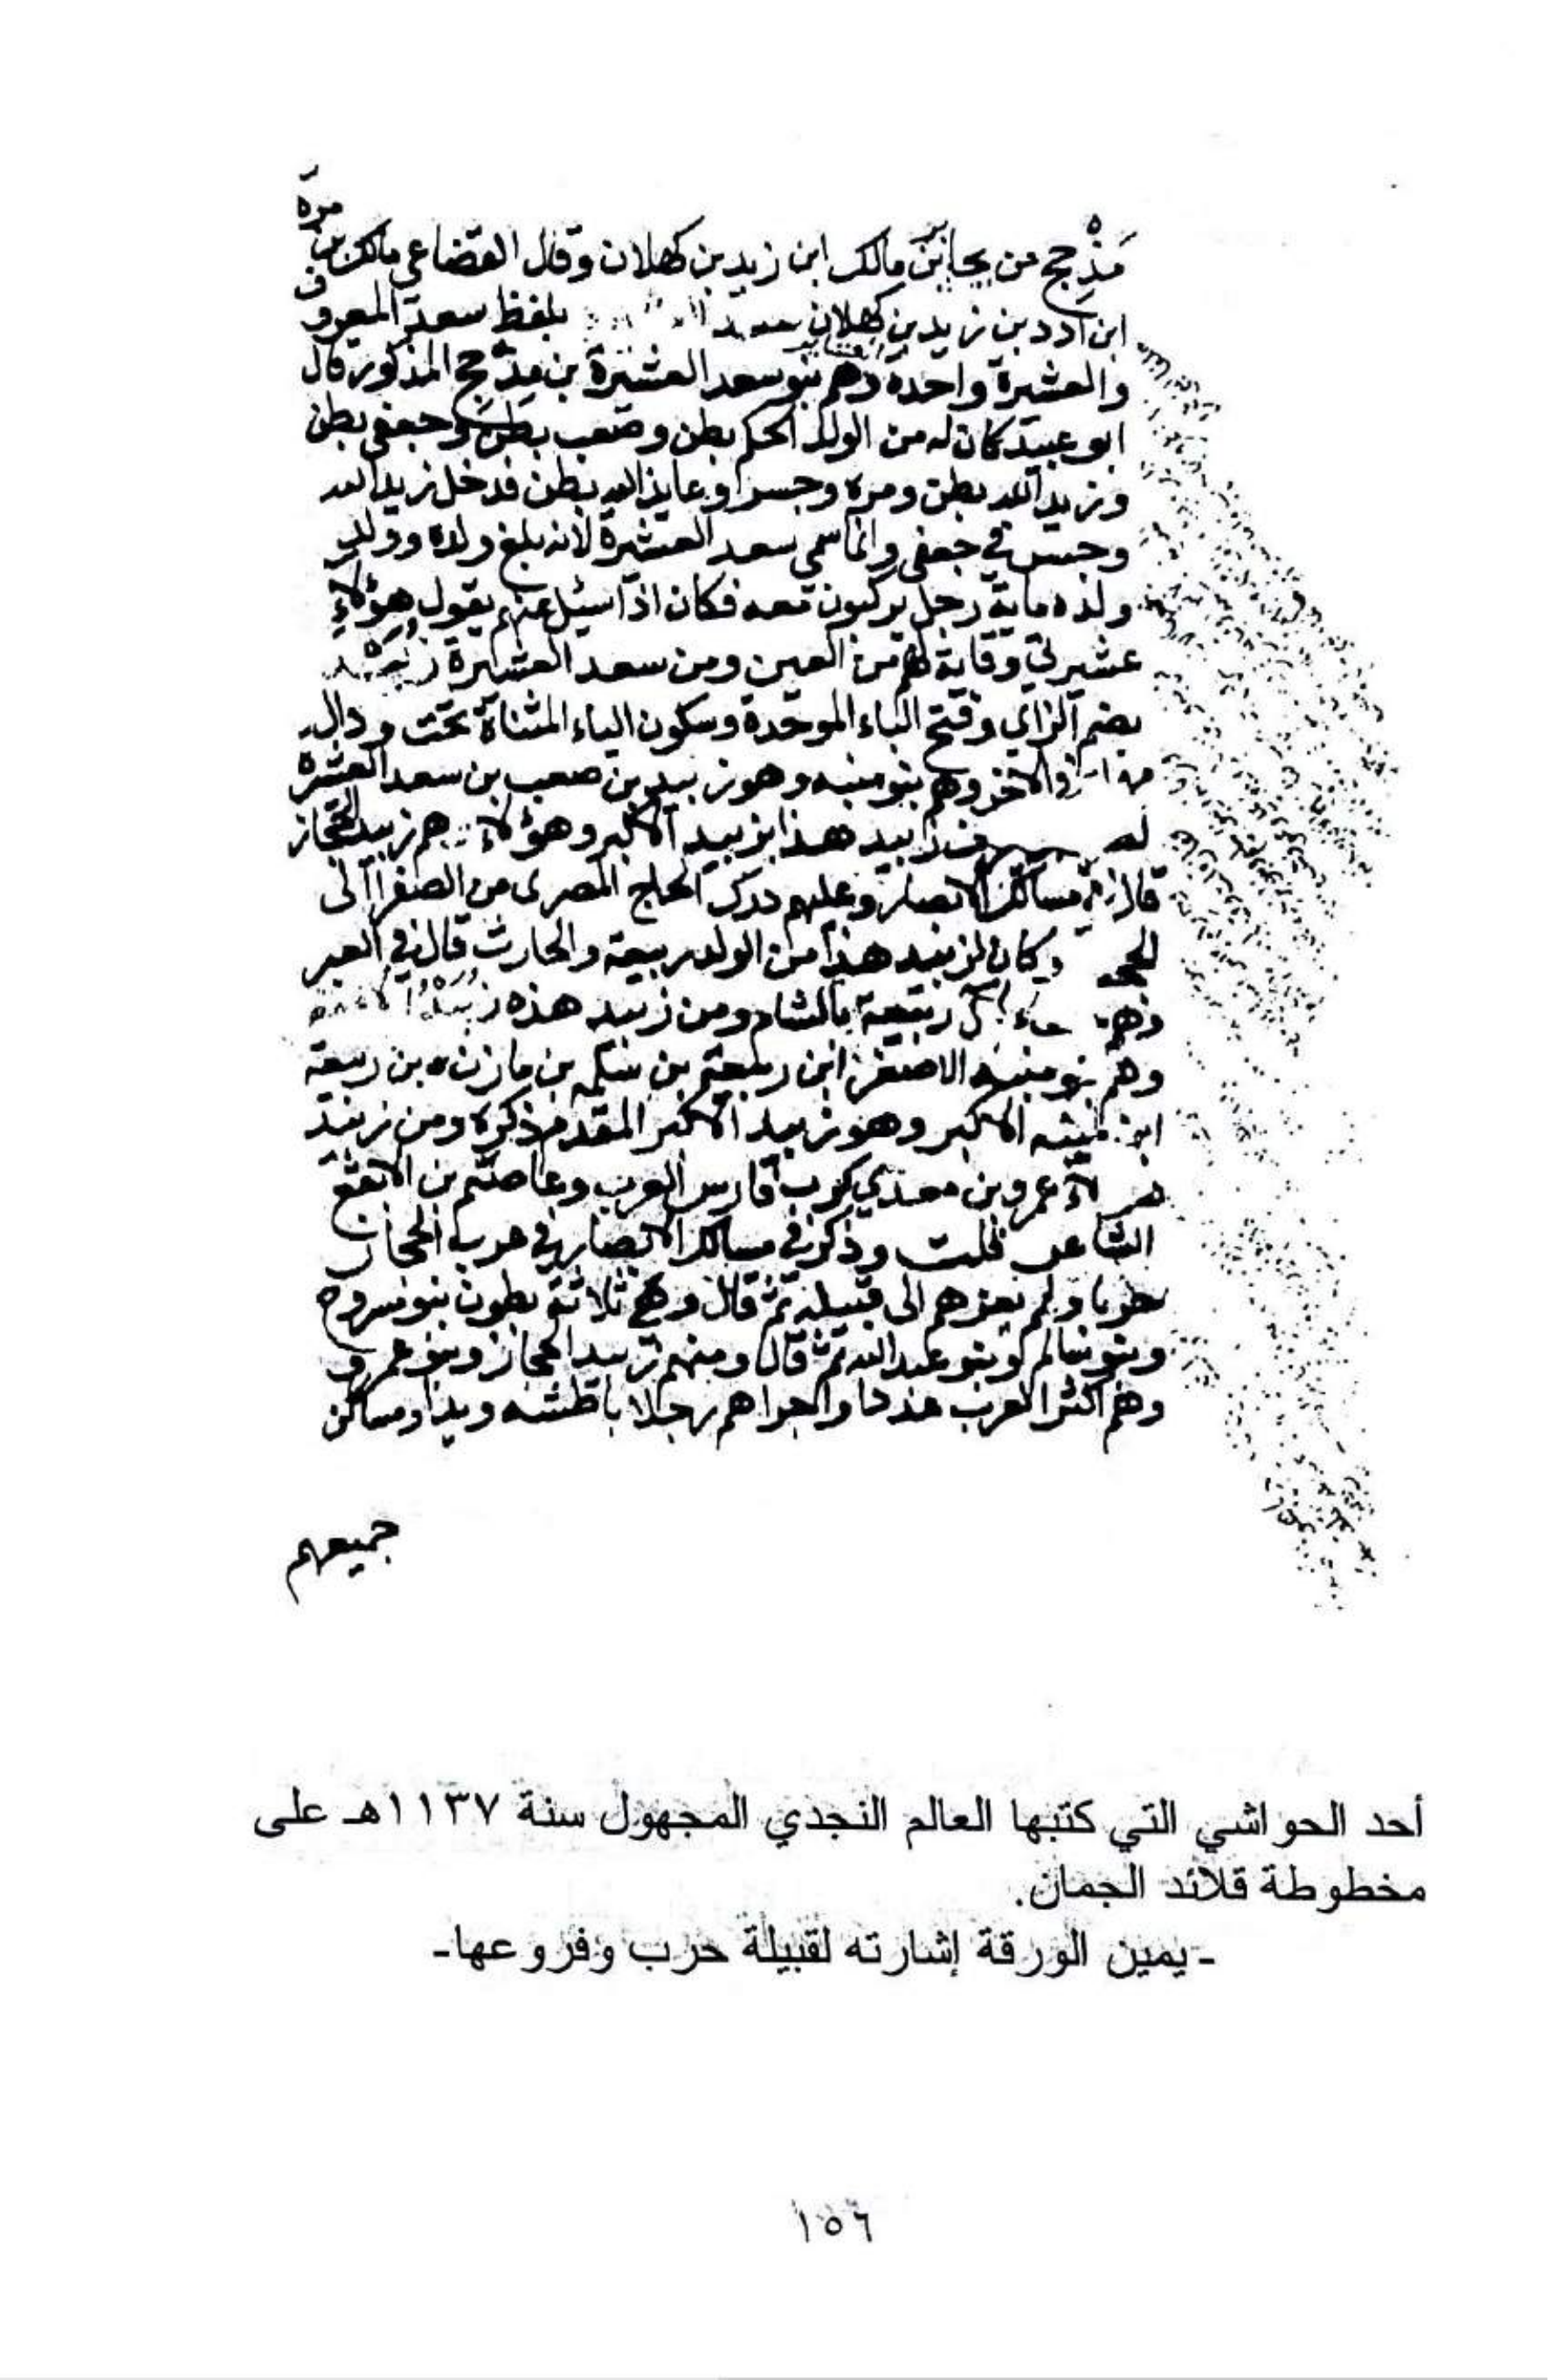 مرة
مَذْحِج من يحابر بن مالك ابن زيد بن كهلان وقال القضاعي مالك بن
ابن ادد بن زيد بن كهلان بلفظ سعد المعروف
والعشيرة واحدة وهم بنو سعد العشيرة بن مذحج المذكور قال
ابو عبيد كان له من الولد الحكم بطن وصعب بطن وجعفي بطن
وزيد الله بطن ومره وجسر وعايذ الله بطن فدخل زيد الله
وجسر في جعفي وانما سمي سعد العشيرة لانه بلغ ولده وولد
ولده ماية رجل يركبون معه فكان اذا سيل عنهم يقول هؤلاء
عشيرتي وقاية لهم من العين ومن سعد العشيرة زبيد
بضم الزاي وفتح الباء الموحدة وسكون الياء المثناة تحت ودال
في الاخر وهم بنو منبه وهو زبيد بن صعب بن سعد العشيرة
هذا زبيد الاكبر وهؤلاء هم زبيد الحجاز
قال في مسالك الابصار وعليهم درك الحاج المصري من الصفرا الى
وكان لزبيد هذا من الولد ربيعة والحارث قال في العبر
ربيعة بالشام ومن زبيد هذه زبيد
وهم بنو منبه الاصغر ابن ربيعة بن سلمه بن مازن بن ربيعة
ابن منبه الاكبر وهو زبيد الاكبر المقدم ذكره ومن زبيد
عمرو بن معدي كرب فارس العرب وعاصم بن الاصقع
الشاعر قلت وذكر في مسالك الابصار في عرب الحجاز
حربا ولم يعزهم الى قبيلة ثم قال وهم ثلاثة بطون بنو مسروح
وبنو سالم وبنو عبد الله ثم قال ومنهم زبيد الحجاز وبنو عمرو
وهم اكثر العرب عددا واجراهم رجلا باطشه ويدا ومساكن
جميعهم
أحد الحواشي التي كتبها العالم النجدي المجهول سنة ١١٣٧هـ على
مخطوطة قلائد الجمان.
- يمين الورقة إشارته لقبيلة حرب وفروعها-
١٥٦